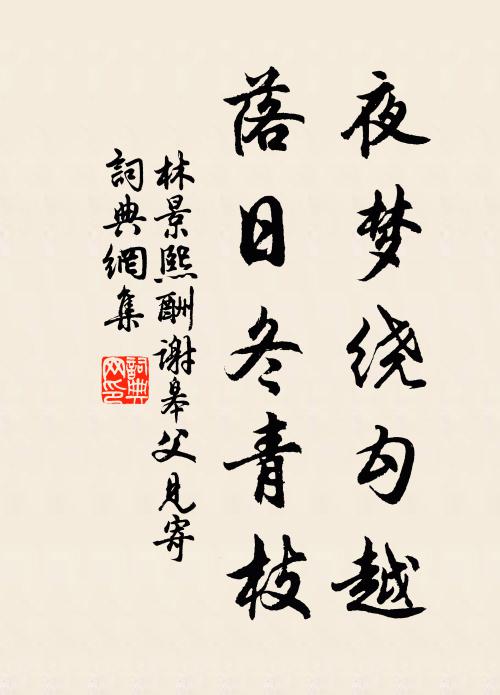 夜梦绕勾越
落日冬青枝
林景熙酬谢皋父见寄
詞典網集
詞典
网印